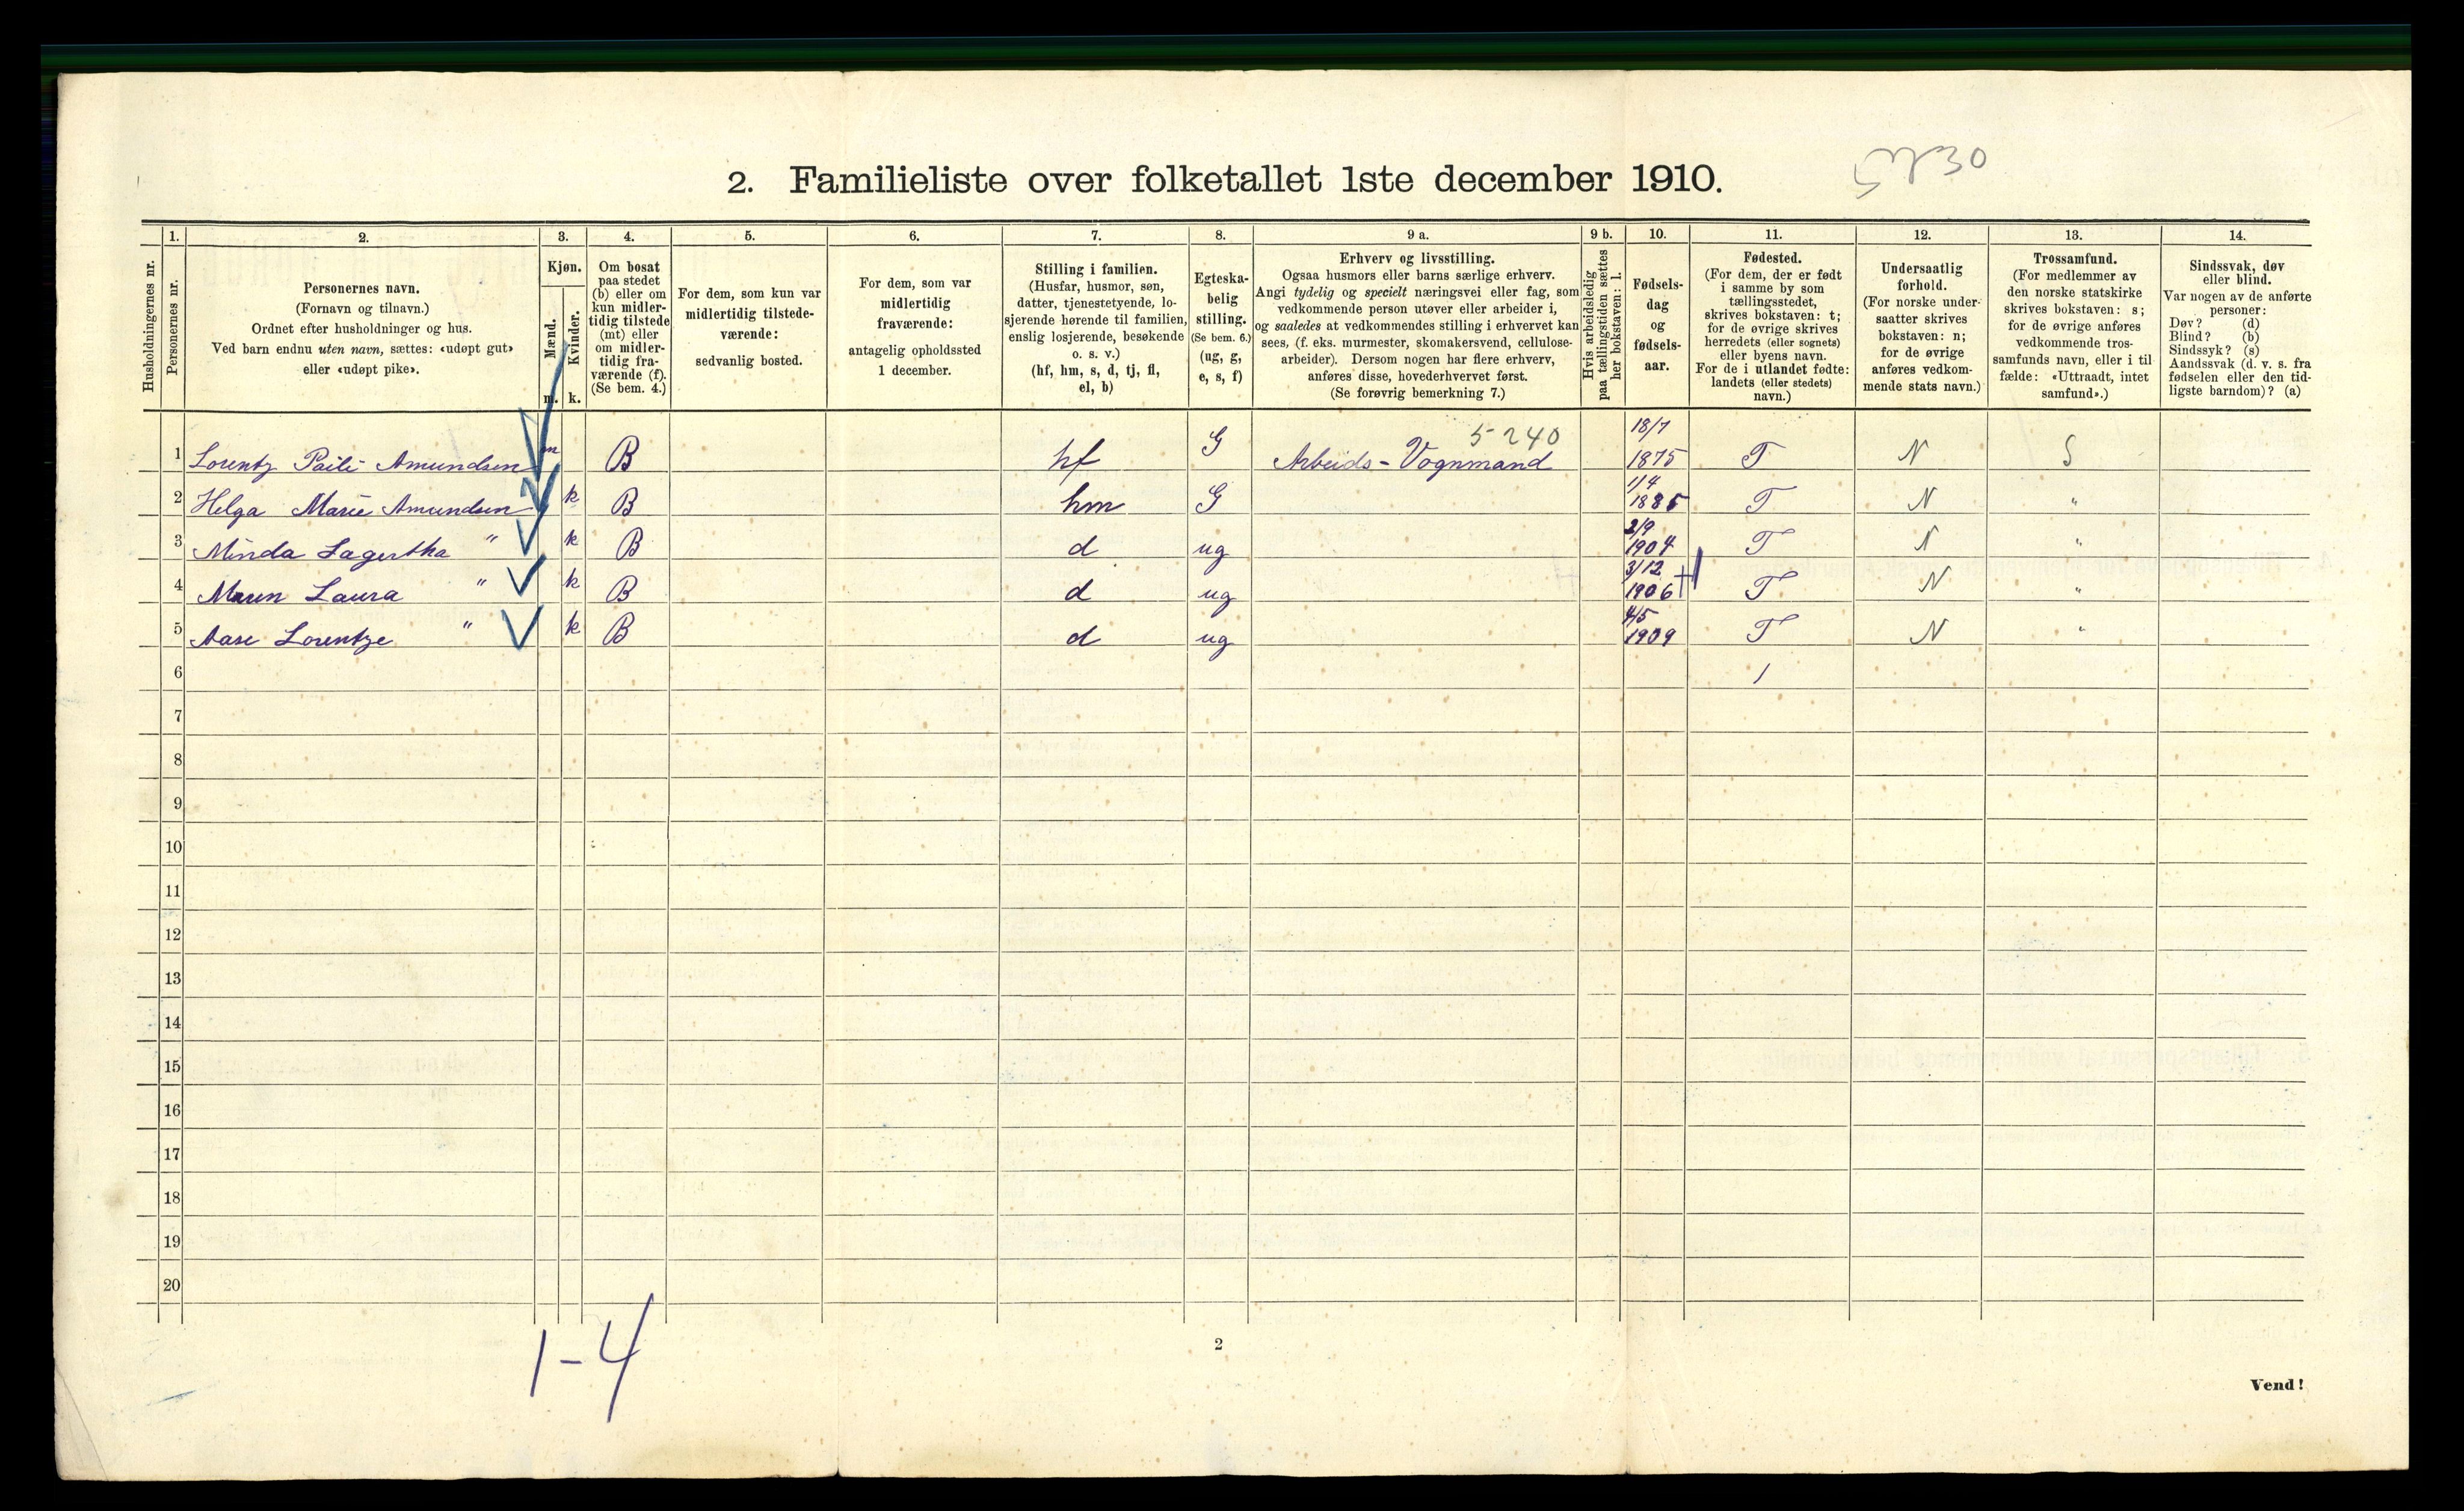 2. Familieliste over folketallet 1ste december 1910.
1. 2. 3. 4. 5. 6. 7. 8. 9 a. 9 b. 10. 11. 12. 13. 14.
Husholdningernes nr.
Personernes nr.
Personernes navn.
(Fornavn og tilnavn.)
Ordnet efter husholdninger og hus.
Ved barn endnu uten navn, sættes: «udøpt gut»
eller «udøpt pike».
Kjøn.
Mænd.
Kvinder.
m. k.
Om bosat
paa stedet
(b) eller om
kun midler-
tidig tilstede
(mt) eller
om midler-
tidig fra-
værende (f).
(Se bem. 4.)
For dem, som kun var
midlertidig tilstede-
værende:
sedvanlig bosted.
For dem, som var
midlertidig
fraværende:
antagelig opholdssted
1 december.
Stilling i familien.
(Husfar, husmor, søn,
datter, tjenestetyende, lo-
sjerende hørende til familien,
enslig losjerende, besøkende
o. s. v.)
(hf, hm, s, d, tj, fl,
el, b)
Egteska-
belig
stilling.
(Se bem. 6.)
(ug, g,
e, s, f)
Erhverv og livsstilling.
Ogsaa husmors eller barns særlige erhverv.
Angi tydelig og specielt næringsvei eller fag, som
vedkommende person utøver eller arbeider i,
og saaledes at vedkommendes stilling i erhvervet kan
sees, (f. eks. murmester, skomakersvend, cellulose-
arbeider). Dersom nogen har flere erhverv,
anføres disse, hovederhvervet først.
(Se forøvrig bemerkning 7.)
Hvis arbeidsledig
paa tællingstiden sættes
her bokstaven: l.
Fødsels-
dag
og
fødsels-
aar.
Fødested.
(For dem, der er født
i samme by som
tællingsstedet,
skrives bokstaven: t;
for de øvrige skrives
herredets (eller sognets)
eller byens navn.
For de i utlandet fødte:
landets (eller stedets)
navn.)
Undersaatlig
forhold.
(For norske under-
saatter skrives
bokstaven: n;
for de øvrige
anføres vedkom-
mende stats navn.)
Trossamfund.
(For medlemmer av
den norske statskirke
skrives bokstaven: s;
for de øvrige anføres
vedkommende tros-
samfunds navn, eller i til-
fælde: «Uttraadt, intet
samfund».)
Sindssvak, døv
eller blind.
Var nogen av de anførte
personer:
Døv? (d)
Blind? (b)
Sindssyk? (s)
Aandssvak (d. v. s. fra
fødselen eller den tid-
ligste barndom)? (a)
5 240
1 Lorentz Amundsen m B hf G Arbeids-Vognmand 18/7 1875 T N S
2 Helga Marie Amundsen k B hm G 1/4 1885 T N "
3 Minda Lagertha " k B d ug 2/9 1904 T N "
4 Laura " k B d ug 3/12 1906 T N "
5 Aase Lorentze " k B d ug 4/5 1909 T N "
6 1
7
8
9
10
11
12
13
14
15
16
17
18
19
20
1-4
2
Vend!